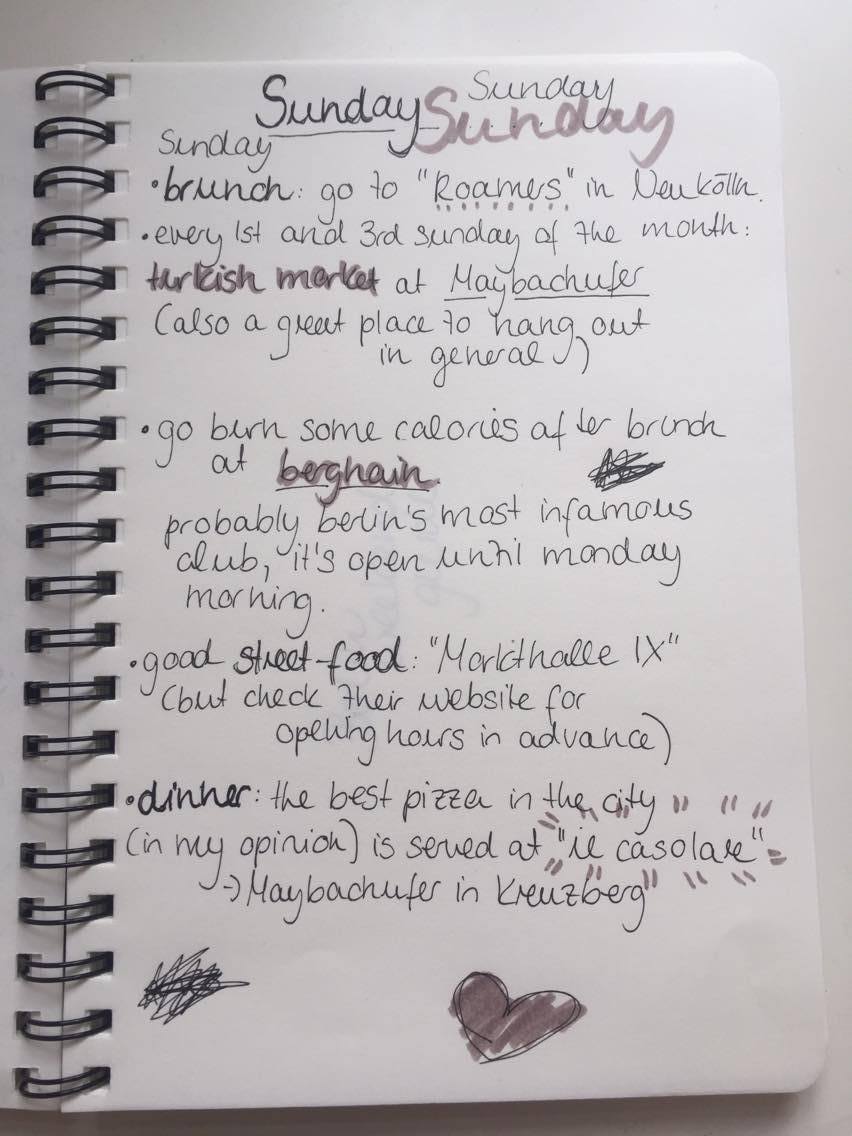 Sunday Sunday
Sunday
Sunday
•brunch: go to "Roamers" in Neukölln.
•every 1st and 3rd sunday of the month:
turkish market at Maybachufer
(also a great place to hang out
in general)
•go burn some calories after brunch
at berghain.
probably berlin's most infamous
club, it's open until monday
morning.
•good street-food: "Markthalle IX"
(but check their website for
opening hours in advance)
•dinner: the best pizza in the city
(in my opinion) is served at "il casolare"
→ Maybachufer in Kreuzberg